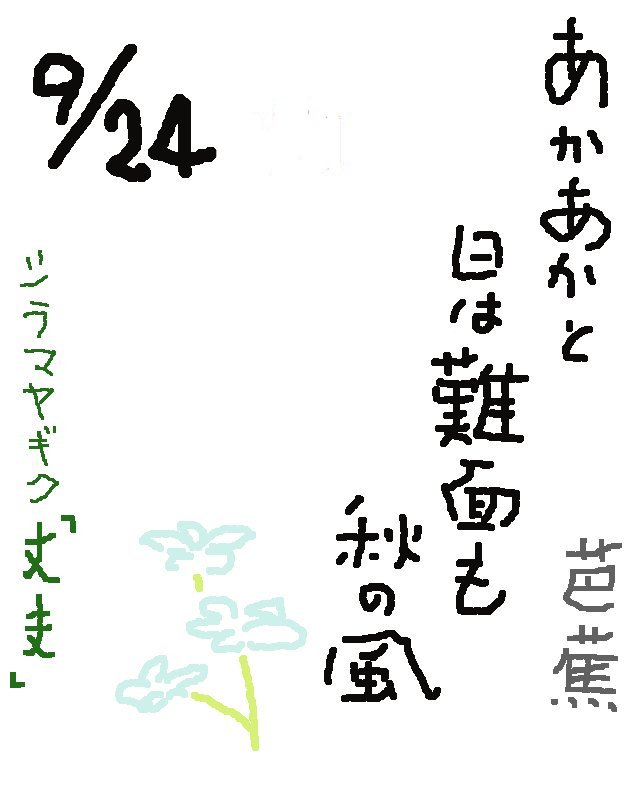 9/24
あかあかと
日は難面も
秋の風
芭蕉
シラマヤギク「丈夫」